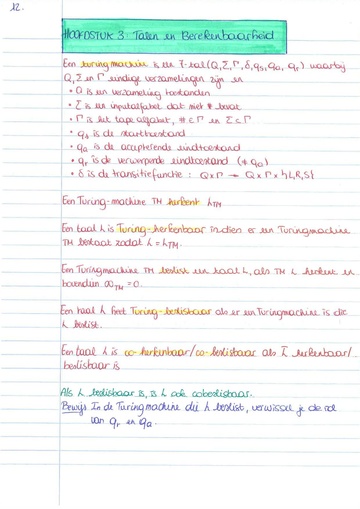 12.
HOOFDSTUK 3: Talen en Berekenbaarheid
Een turingmachine is een 7-tal (Q, Σ, Γ, δ, qs, qa, qr) waarbij
Q, Σ en Γ eindige verzamelingen zijn en
• Q is een verzameling toestanden
• Σ is een inputalfabet dat niet # bevat
• Γ is het tape alfabet, # ∈ Γ en Σ ⊂ Γ
• qs is de starttoestand
• qa is de accepterende eindtoestand
• qr is de verwerpende eindtoestand (≠ qa)
• δ is de transitiefunctie : Q x Γ → Q x Γ x {L,R,S}
Een Turing-machine TM herkent LTM
Een taal L is Turing-herkenbaar indien er een Turingmachine
TM bestaat zodat L = LTM.
Een Turingmachine TM beslist een taal L, als TM L herkent en
bovendien ∞TM = ∅.
Een taal L heet Turing-beslisbaar als er een Turingmachine is die
L beslist.
Een taal L is co-herkenbaar/co-beslisbaar als L̄ herkenbaar/
beslisbaar is
Als L beslisbaar is, is L ook cobeslisbaar.
Bewijs In de Turingmachine die L beslist, verwissel je de rol
van qr en qa.